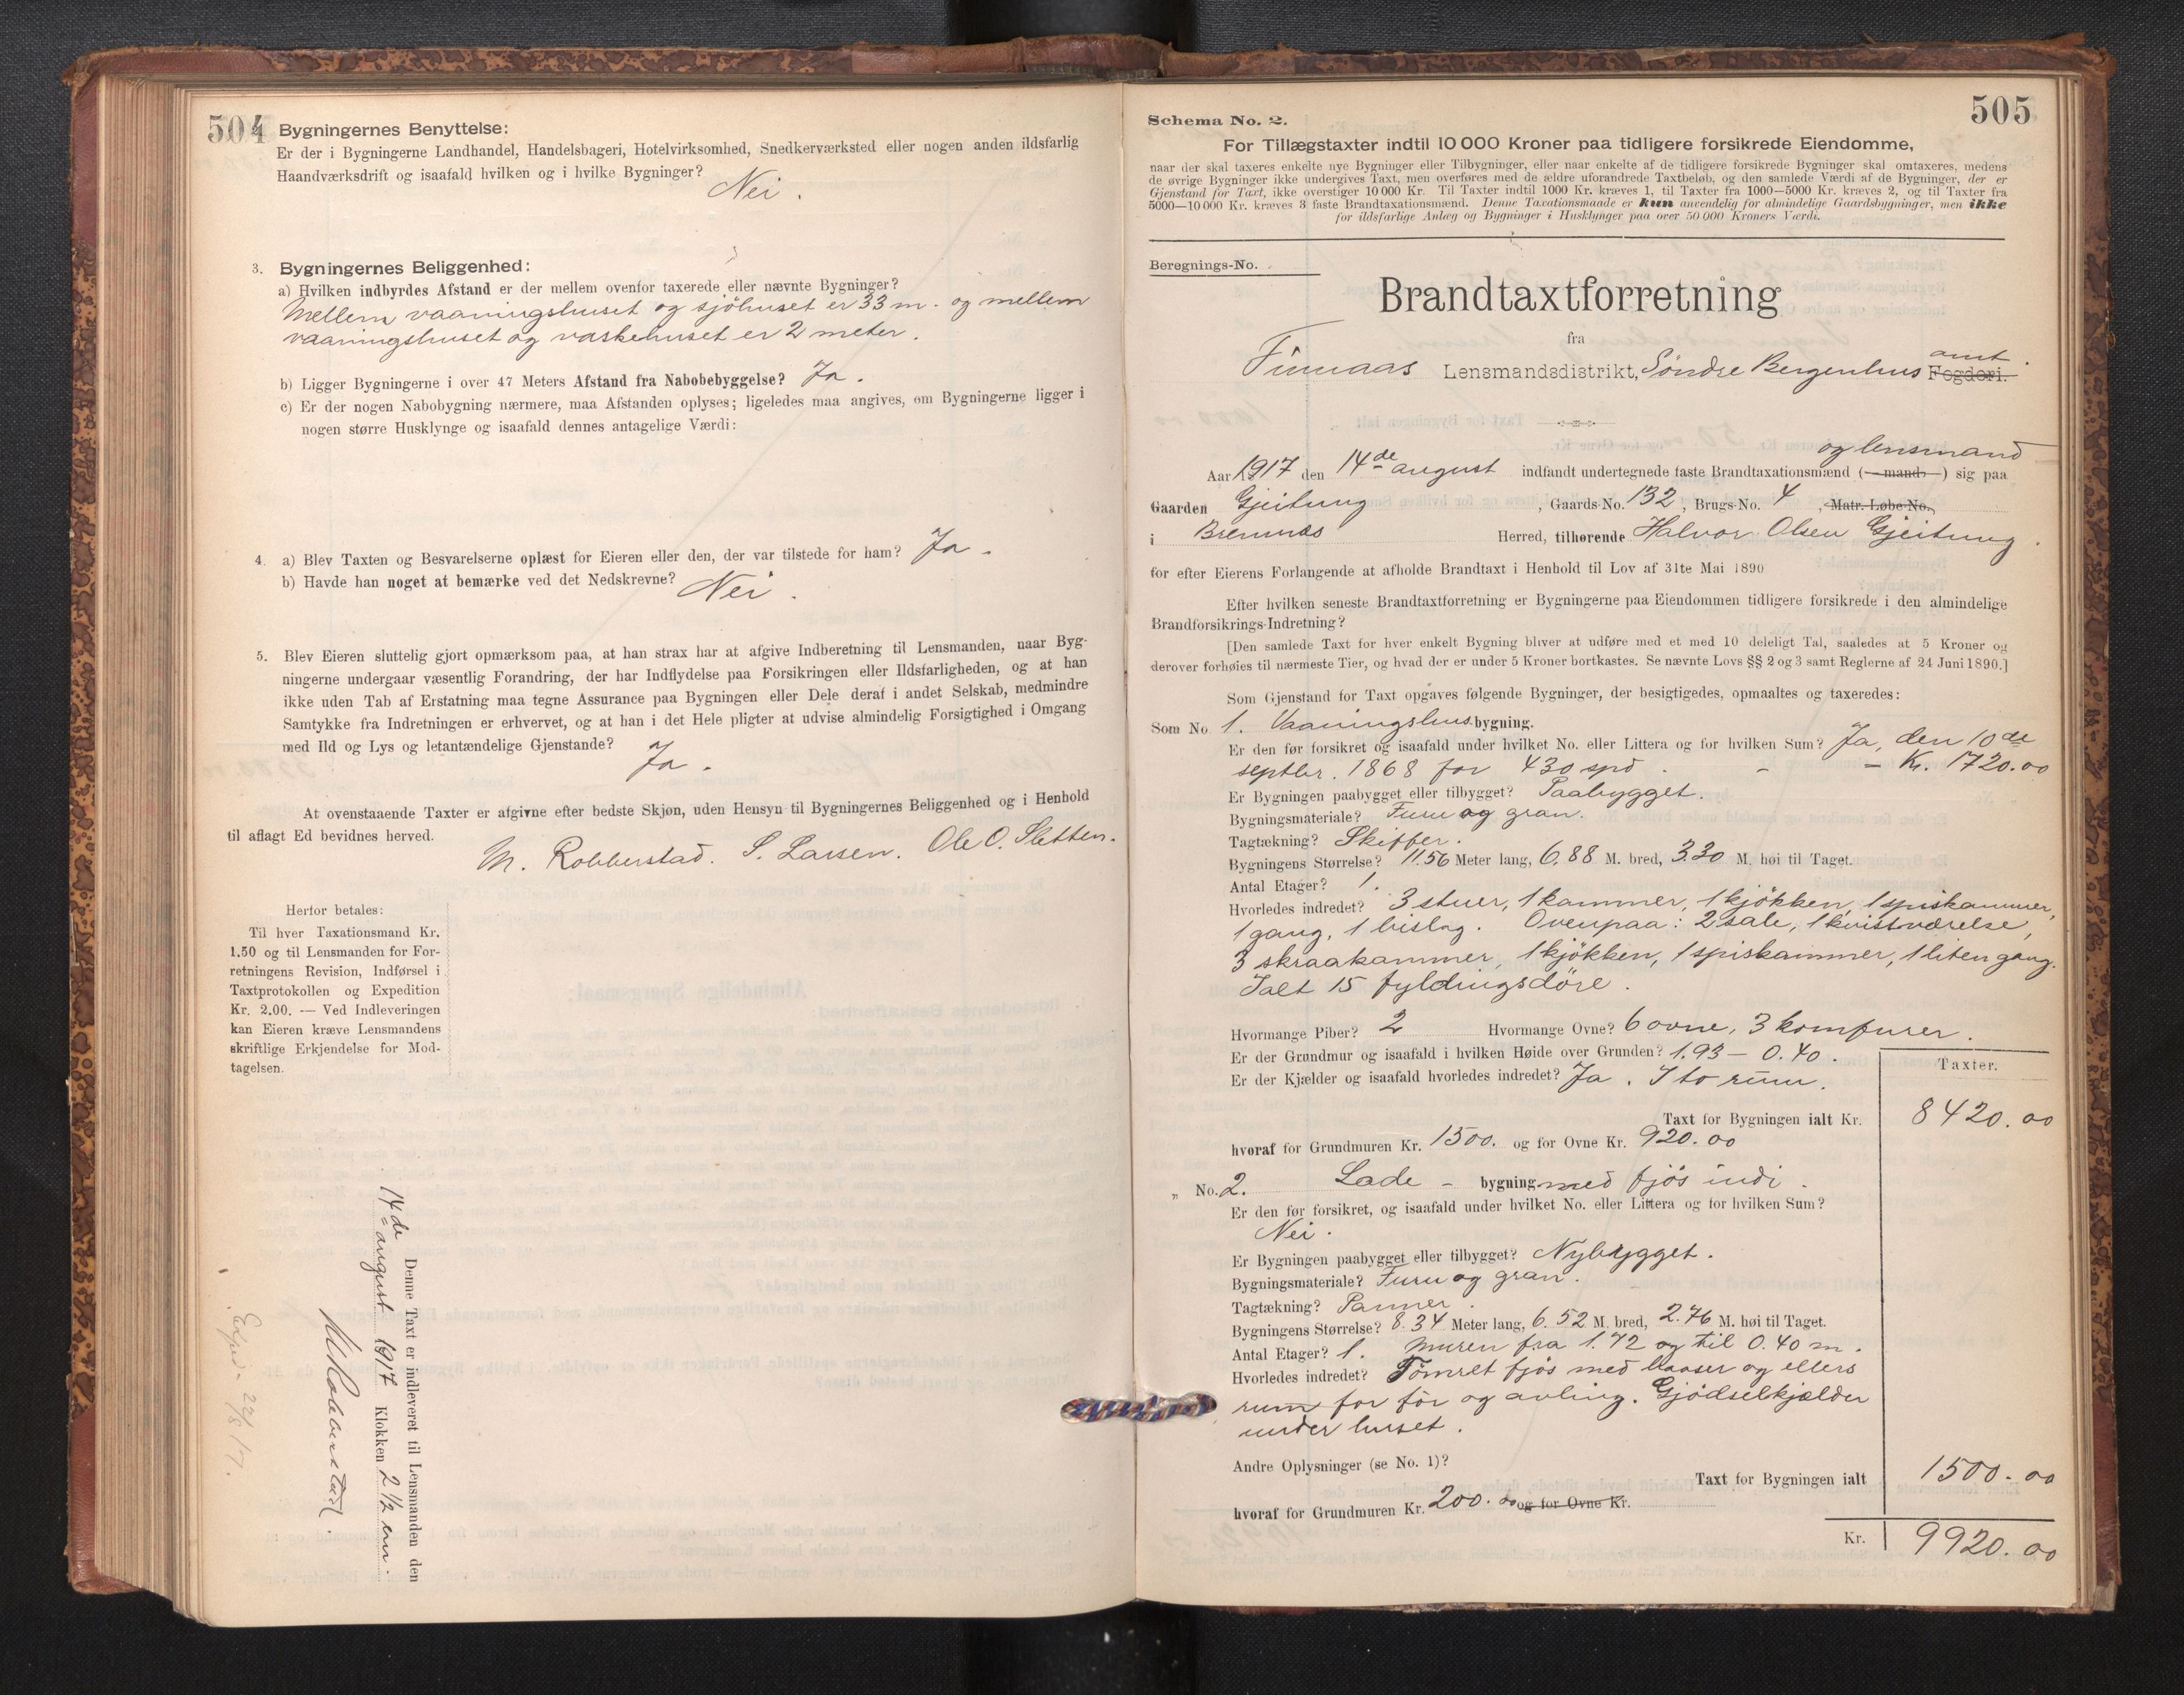 504
Bygningernes Benyttelse:
Er der i Bygningerne Landhandel, Handelsbageri, Hotelvirksomhed, Snedkerværksted eller nogen anden ildsfarlig
Haandværksdrift og isaafald hvilken og i hvilke Bygninger?
Nei.
3. Bygningernes Beliggenhed:
a) Hvilken indbyrdes Afstand er der mellem ovenfor taxerede eller nævnte Bygninger?
Mellem vaaningshuset og sjöhuset er 33 m. og mellem
vaaningshuset og vaskehuset er 2 meter.
b) Ligger Bygningerne i over 47 Meters Afstand fra Nabobebyggelse? Ja.
c) Er der nogen Nabobygning nærmere, maa Afstanden oplyses; ligeledes maa angives, om Bygningerne ligger i
nogen større Husklynge og isaafald dennes antagelige Værdi:
4. a) Blev Taxten og Besvarelserne oplæst for Eieren eller den, der var tilstede for ham? Ja.
b) Havde han noget at bemærke ved det Nedskrevne? Nei.
5. Blev Eieren sluttelig gjort opmærksom paa, at han strax har at afgive Indberetning til Lensmanden, naar Byg-
ningerne undergaar væsentlig Forandring, der har Indflydelse paa Forsikringen eller Ildsfarligheden, og at han
ikke uden Tab af Erstatning maa tegne Assurance paa Bygningen eller Dele deraf i andet Selskab, medmindre
Samtykke fra Indretningen er erhvervet, og at han i det Hele pligter at udvise almindelig Forsigtighed i Omgang
med Ild og Lys og letantændelige Gjenstande?
Ja.
At ovenstaaende Taxter er afgivne efter bedste Skjøn, uden Hensyn til Bygningernes Beliggenhed og i Henhold
til aflagt Ed bevidnes herved.
M. Robberstad. S. Larsen. Ole O. Sletten.
Herfor betales:
Til hver Taxationsmand Kr.
1.50 og til Lensmanden for For-
retningens Revision, Indførsel i
Taxtprotokollen og Expedition
Kr. 2.00. — Ved Indleveringen
kan Eieren kræve Lensmandens
skriftlige Erkjendelse for Mod-
tagelsen.
Denne Taxt er indleveret til Lensmanden den
14de august 1917 Klokken 2 1/2 em.
M Robberstad.
Exped. 22/8 17.
505
Schema No. 2.
For Tillægstaxter indtil 10 000 Kroner paa tidligere forsikrede Eiendomme,
naar der skal taxeres enkelte nye Bygninger eller Tilbygninger, eller naar enkelte af de tidligere forsikrede Bygninger skal omtaxeres, medens
de øvrige Bygninger ikke undergives Taxt, men overføres med de ældre uforandrede Taxtbeløb, og den samlede Værdi af de Bygninger, der er
Gjenstand for Taxt, ikke overstiger 10 000 Kr. Til Taxter indtil 1000 Kr. kræves 1, til Taxter fra 1000—5000 Kr. kræves 2, og til Taxter fra
5000—10 000 Kr. kræves 3 faste Brandtaxationsmænd. Denne Taxationsmaade er kun anvendelig for almindelige Gaardsbygninger, men ikke
for ildsfarlige Anlæg og Bygninger i Husklynger paa over 50 000 Kroners Værdi.
Beregnings-No.
Brandtaxtforretning
fra
Finnaas Lensmandsdistrikt, Söndre Bergenhus amt. Fogderi.
og lensmand
Aar 1917 den 14de august indfandt undertegnede faste Brandtaxationsmænd (—mand—) sig paa
Gaarden Gjeitung, Gaards-No. 132, Brugs-No. 4, Matr. Løbe-No.
i Bremnes Herred, tilhørende Halvor Olsen Gjeitung.
for efter Eierens Forlangende at afholde Brandtaxt i Henhold til Lov af 31te Mai 1890
Efter hvilken seneste Brandtaxtforretning er Bygningerne paa Eiendommen tidligere forsikrede i den almindelige
Brandforsikrings-Indretning?
[Den samlede Taxt for hver enkelt Bygning bliver at udføre med et med 10 deleligt Tal, saaledes at 5 Kroner og
derover forhøies til nærmeste Tier, og hvad der er under 5 Kroner bortkastes. Se nævnte Lovs §§ 2 og 3 samt Reglerne af 24 Juni 1890.]
Som Gjenstand for Taxt opgaves følgende Bygninger, der besigtigedes, opmaaltes og taxeredes:
Som No. 1. Vaaningshusbygning.
Er den før forsikret og isaafald under hvilket No. eller Littera og for hvilken Sum? Ja, den 10de
septbr. 1868 for 430 spd. - - Kr. 1720.00
Er Bygningen paabygget eller tilbygget? Paabygget.
Bygningsmateriale? Furu og gran.
Tagtækning? Skiffer.
Bygningens Størrelse? 11.56 Meter lang, 6.88 M. bred, 3.30 M. høi til Taget.
Antal Etager? 1.
Hvorledes indredet? 3 stuer, 1 kammer, 1 kjökken, 1 spiskammer,
1 gang, 1 bislag. Ovenpaa: 2 sale, 1 kvistværelse,
3 skraakammer, 1 kjökken, 1 spiskammer, 1 liten gang.
Ialt 15 fyldingsdöre.
Hvormange Piber? 2 Hvormange Ovne? 6 ovne, 3 komfurer.
Er der Grundmur og isaafald i hvilken Høide over Grunden? 1.93 — 0.40.
Er der Kjælder og isaafald hvorledes indredet? Ja. I to rum.
Taxter.
Taxt for Bygningen ialt Kr. 8420.00
hvoraf for Grundmuren Kr. 1500. og for Ovne Kr. 920.00
„ No. 2. Lade - bygning med fjös indi.
Er den før forsikret, og isaafald under hvilket No. eller Littera og for hvilken Sum?
Nei.
Er Bygningen paabygget eller tilbygget? Nybygget.
Bygningsmateriale? Furu og gran.
Tagtækning? Panner.
Bygningens Størrelse? 8.34 Meter lang, 6.52 M. bred, 2.76 M. høi til Taget.
Antal Etager? 1. Muren fra 1.72 og til 0.40 m.
Hvorledes indredet? Tömret fjös med baaser og ellers
rum for för og avling. Gjödselkjælder
under huset.
Andre Oplysninger (se No. 1)?
Taxt for Bygningen ialt 1500.00
hvoraf for Grundmuren Kr. 200.00 og for Ovne Kr.
Kr. 9920.00